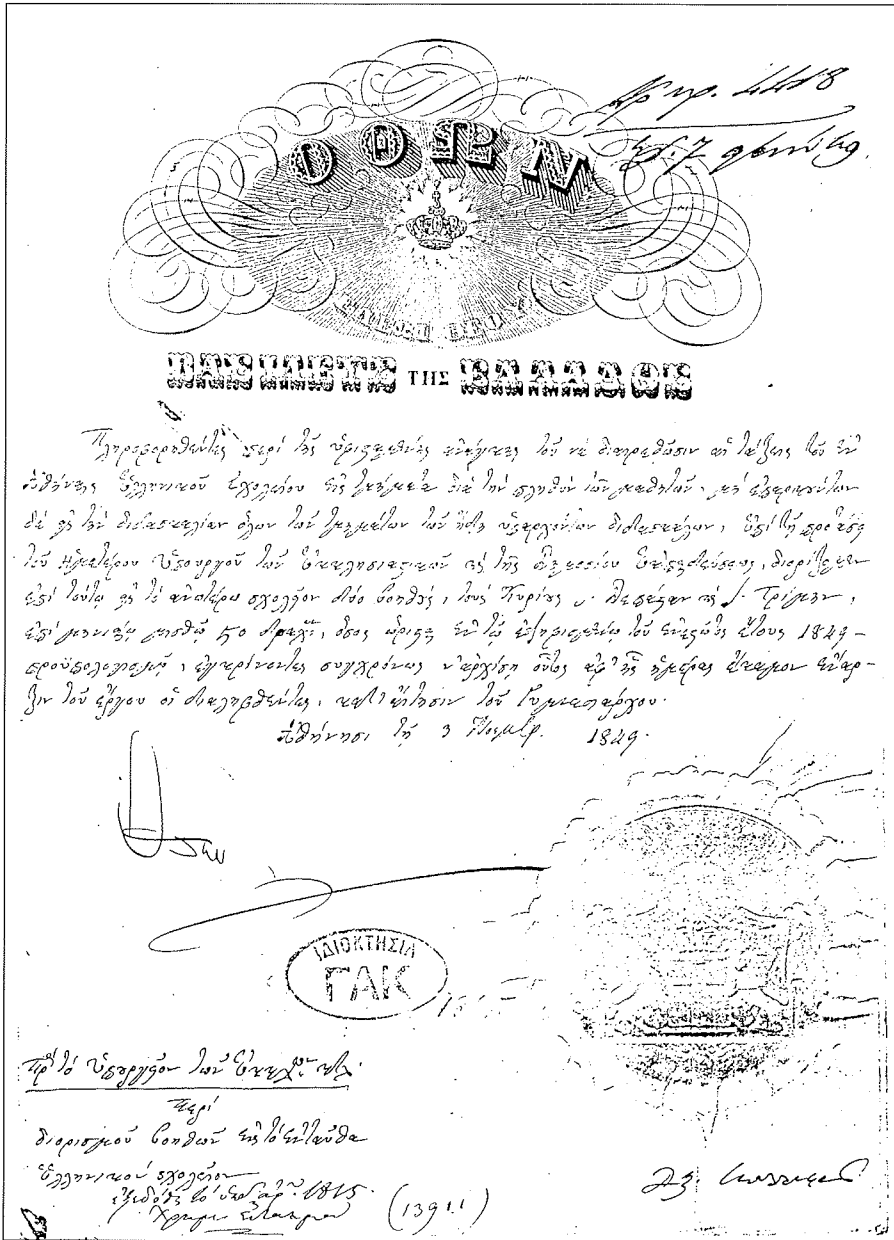 ΟΘΩΝ
ΕΛΕΩ ΘΕΟΥ
ΒΑΣΙΛΕΥΣ ΤΗΣ ΕΛΛΑΔΟΣ
Πληροφορηθέντες περὶ τῆς ἀνάγκης τοῦ νὰ διαιρεθῶσιν αἱ τάξεις τοῦ ἐν
Ἀθήναις Ἑλληνικοῦ Σχολείου εἰς τμήματα διὰ τὴν πληθὺν τῶν μαθητῶν, μὴ ἐπαρκούντων
δὲ εἰς τὴν διδασκαλίαν ὅλων τῶν τμημάτων τῶν ἤδη ὑπαρχόντων διδασκάλων, ἐπὶ τῇ προτάσει
τοῦ Ἡμετέρου Ὑπουργοῦ τῶν Ἐκκλησιαστικῶν καὶ τῆς Δημοσίου Ἐκπαιδεύσεως, διορίζομεν
ἐπὶ τούτῳ εἰς τὸ ἀνωτέρω σχολεῖον δύο βοηθούς, τοὺς Κυρίους
ἐπὶ μηνιαίῳ μισθῷ 50 δραχ., ὅστις ὥρισται ἐν τῷ ἐψηφισμένῳ τοῦ ἐνεστῶτος ἔτους 1849
προϋπολογισμῷ, ἐγκρίνοντες συγχρόνως ν' ἀρχίσῃ οὗτος ἀφ' ἧς ἡμέρας ἔκαμον ἔναρ-
ξιν τοῦ ἔργου οἱ διαληφθέντες, κατ' αἴτησιν τοῦ Γυμνασιάρχου.
Ἀθήνησι τῇ 3 Νοεμβρ. 1849.
Ὄθων
ΙΔΙΟΚΤΗΣΙΑ
ΓΑΚ
Πρὸς τὸ Ὑπουργεῖον τῶν
Περὶ
διορισμοῦ βοηθῶν εἰς τὸ ἐνταῦθα
Ἑλληνικὸν σχολεῖον
(13911)